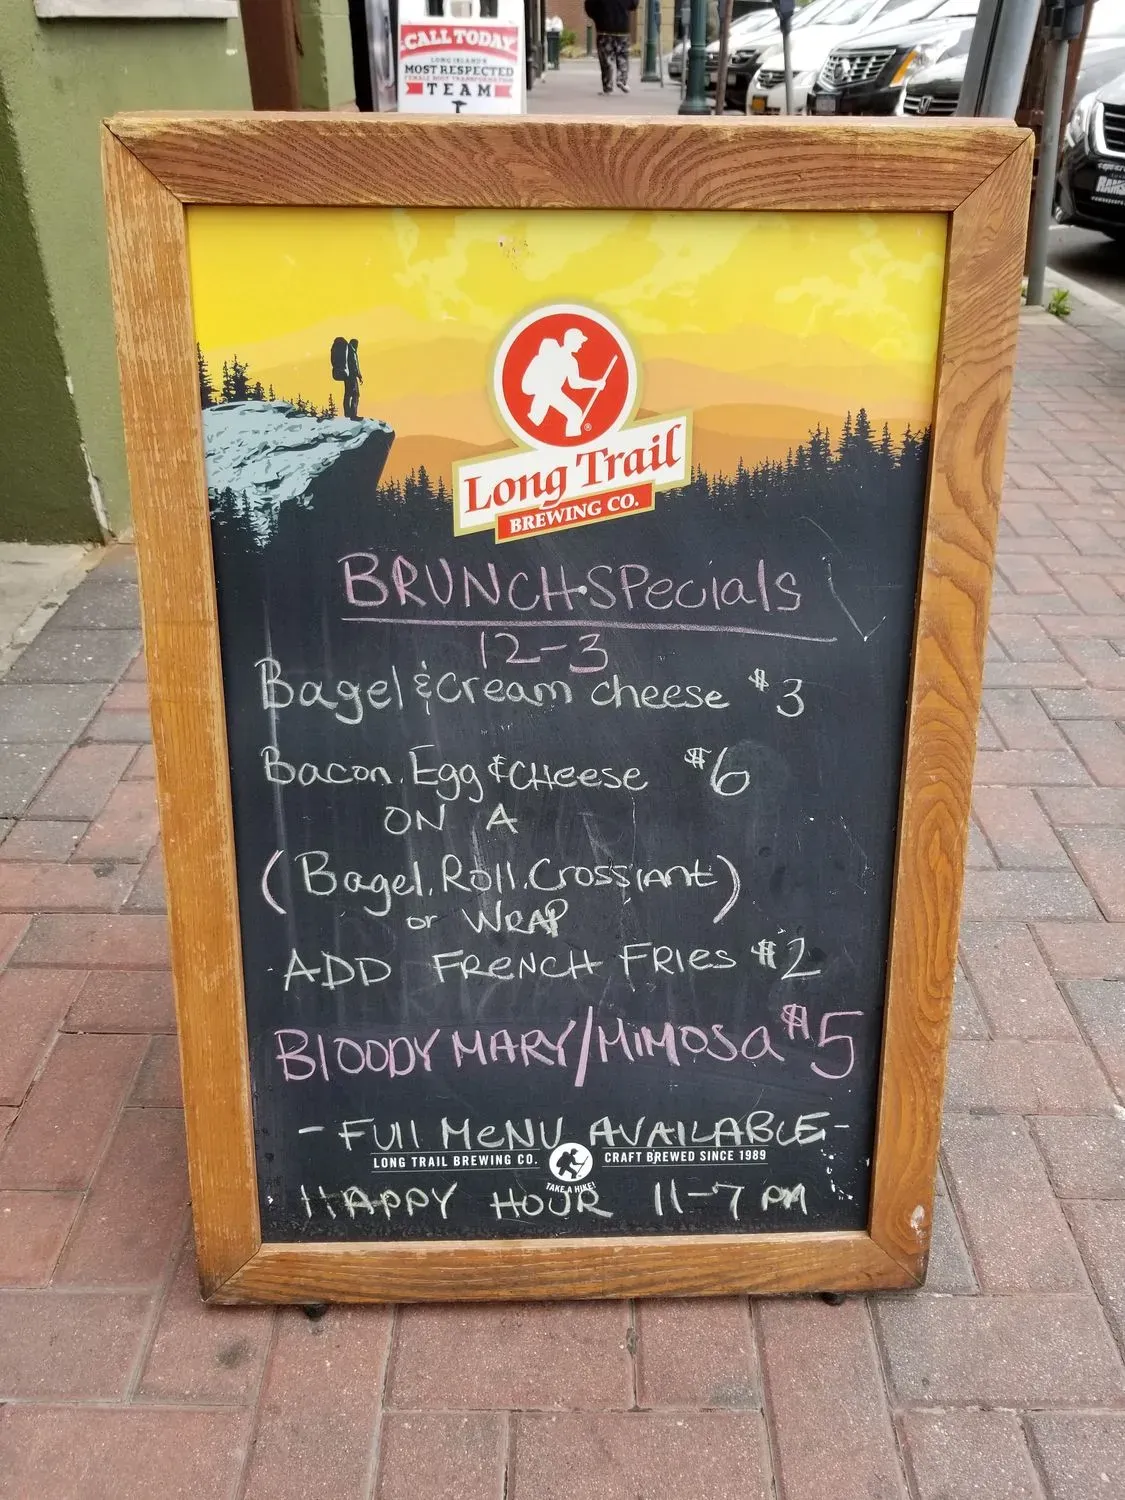 CALL TODAY
LONG ISLAND'S
MOST RESPECTED
TEAM
Long Trail
BREWING CO.
BRUNCH SPecials
12-3
Bagel & Cream cheese $3
Bacon, Egg & CHeese $6
ON A
(Bagel, Roll, Crossiant)
or WRAP
- ADD FRENCH FRIES $2
BLOODY MARY/MIMOSA $5
- FUll MeNU AVAILABLE -
LONG TRAIL BREWING CO. CRAFT BREWED SINCE 1989
TAKE A HIKE!
HAPPY HOUR 11-7 PM